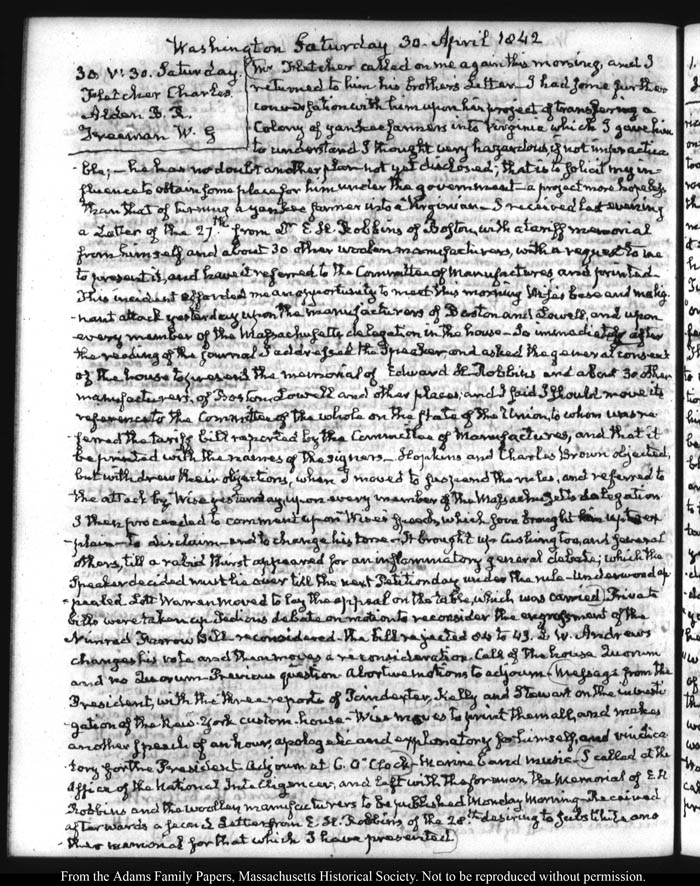 Washington Saturday 30. April 1842
30. V: 30. Saturday.
Fletcher Charles.
Alden B. R.
Freeman W. G
Mr Fletcher called on me again this morning, and I
returned to him his brother's Letter. I had some further
conversation with him upon his project of transferring a
Colony of yankee farmers into Virginia which I gave him
to understand I thought very hazardous if not impractica
ble; — he has no doubt another plan not yet disclosed; that is to solicit my in-
fluence to obtain some place for him under the government — a project more hopeless
than that of turning a yankee farmer into a Virginian — I received last evening
a Letter of the 27th from Mr E. H. Robbins of Boston, with a tariff memorial
from himself and about 30 other woolen manufacturers, with a request to me
to present it, and have it referred to the Committee of Manufactures and printed
This incident afforded me an opportunity to meet this morning Wise's base and malig-
nant attack yesterday upon the manufacturers of Boston and Lowell, and upon
every member of the Massachusetts delegation in the house — So immediately after
the reading of the journal I addressed the Speaker, and asked the general consent
of the house to present the memorial of Edward H. Robbins and about 30 other
manufacturers, of Boston, Lowell and other places, and I said I should move its
reference to the Committee of the whole on the state of the Union, to whom was re-
ferred the tariff bill reported by the Committee of Manufactures, and that it
be printed with the names of the signers — Hopkins and Charles Brown objected,
but withdrew their objections, when I moved to suspend the rules, and referred to
the attack by Wise yesterday, upon every member of the Massachusetts delegation
I then proceeded to comment upon Wise's speech, which soon brought him up to ex
plain — to disclaim — and to change his tone — It brought up Cushing too, and several
others, till a rabid thirst appeared for an inflammatory general debate; which the
Speaker decided must lie over till the next Petition day under the rule — Underwood ap
pealed Lott Warren moved to lay the appeal on the table, which was carried) Private
bills were taken up Tedious debate on motion to reconsider the engrossment of the
Farrow Bill — reconsidered — the bill rejected 64 to 43. L. W. Andrews
changes his vote and then moves a reconsideration. Call of the house Quorum
and no Quorum — Previous question Abortive motions to adjourn — (Message from the
President, with the three reports of Poindexter, Kelly and Stewart on the investi
gation of the New-York custom-house — Wise moves to print them all, and makes
another speech of an hour, apologetic and explanatory for himself, and vindica
tory for the President Adjourn at 6. O'Clock — Marine band music — I called at the
Office of the National Intelligencer, and left with the foreman the Memorial of E. H
Robbins and the woollen manufacturers to be published Monday Morning — Received
afterwards a second Letter from E. H. Robbins of the 28th desiring to substitute ano
ther memorial for that which I have presented)
From the Adams Family Papers, Massachusetts Historical Society. Not to be reproduced without permission.